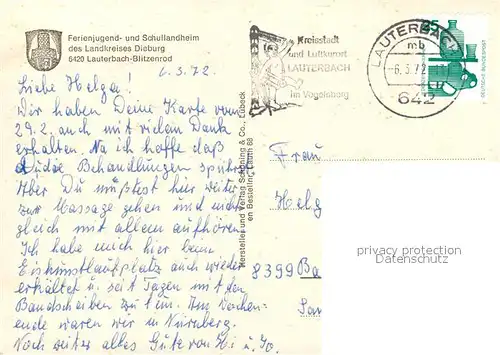 Ferienjugend- und Schullandheim
des Landkreises Dieburg
6420 Lauterbach-Blitzenrod
6.3.72.
Liebe Helga!
Wir haben Deine Karte vom
29.2. auch mit vielem Dank
erhalten. Na ich hoffe daß
Du die Behandlungen spürst
Aber Du müßtest hier weiter
zur Massage gehen und nicht
gleich mit allem aufhören.
Ich habe mich hier beim
Eiskunstlaufplatz auch wieder
erhältet u. seit Tagen mit den
Bandscheiben zu tun. Am Wochen-
ende waren wir in Nürnberg.
Noch weiter alles Gute von Hi u. Jo.
Hersteller und Verlag Schöning & Co., Lübeck
en Bestellnr. Lauth 68
Kreisstadt
und Luftkurort
LAUTERBACH
im Vogelsberg
LAUTERBACH
mb
-6.3.72
642
25
DEUTSCHE BUNDESPOST
Frau
Helg
8399 Ba
privacy protection
Datenschutz